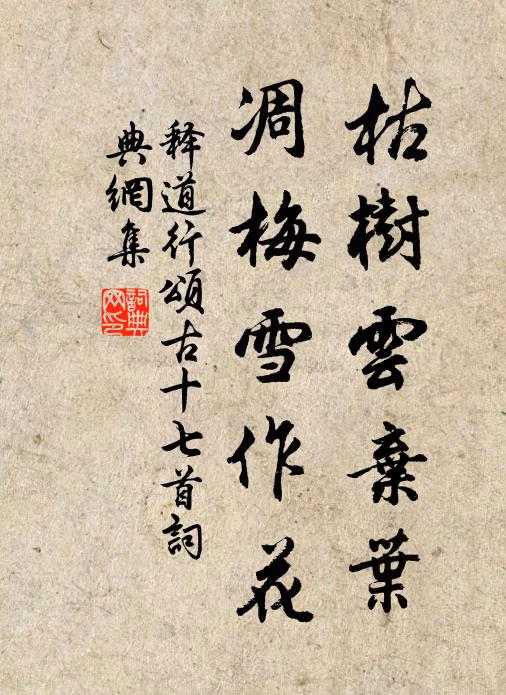 枯樹雲棄葉
凋梅雪作花
释道行頌古十七首詞
典網集
詞典網印